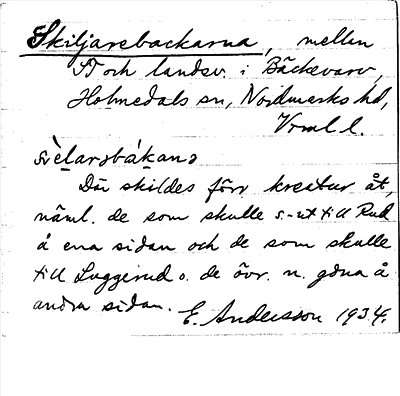 Skiljarebackarna, mellan
ST och landsv. i Bäckevarv,
Holmedals sn, Nordmarks hd,
Vrml l.
Där skildes förr kreatur åt,
näml. de som skulle s.-ut till Rud
å ena sidan och de som skulle
till Luggerud o. de övr. n. gdna å
andra sidan. E. Andersson 1934.